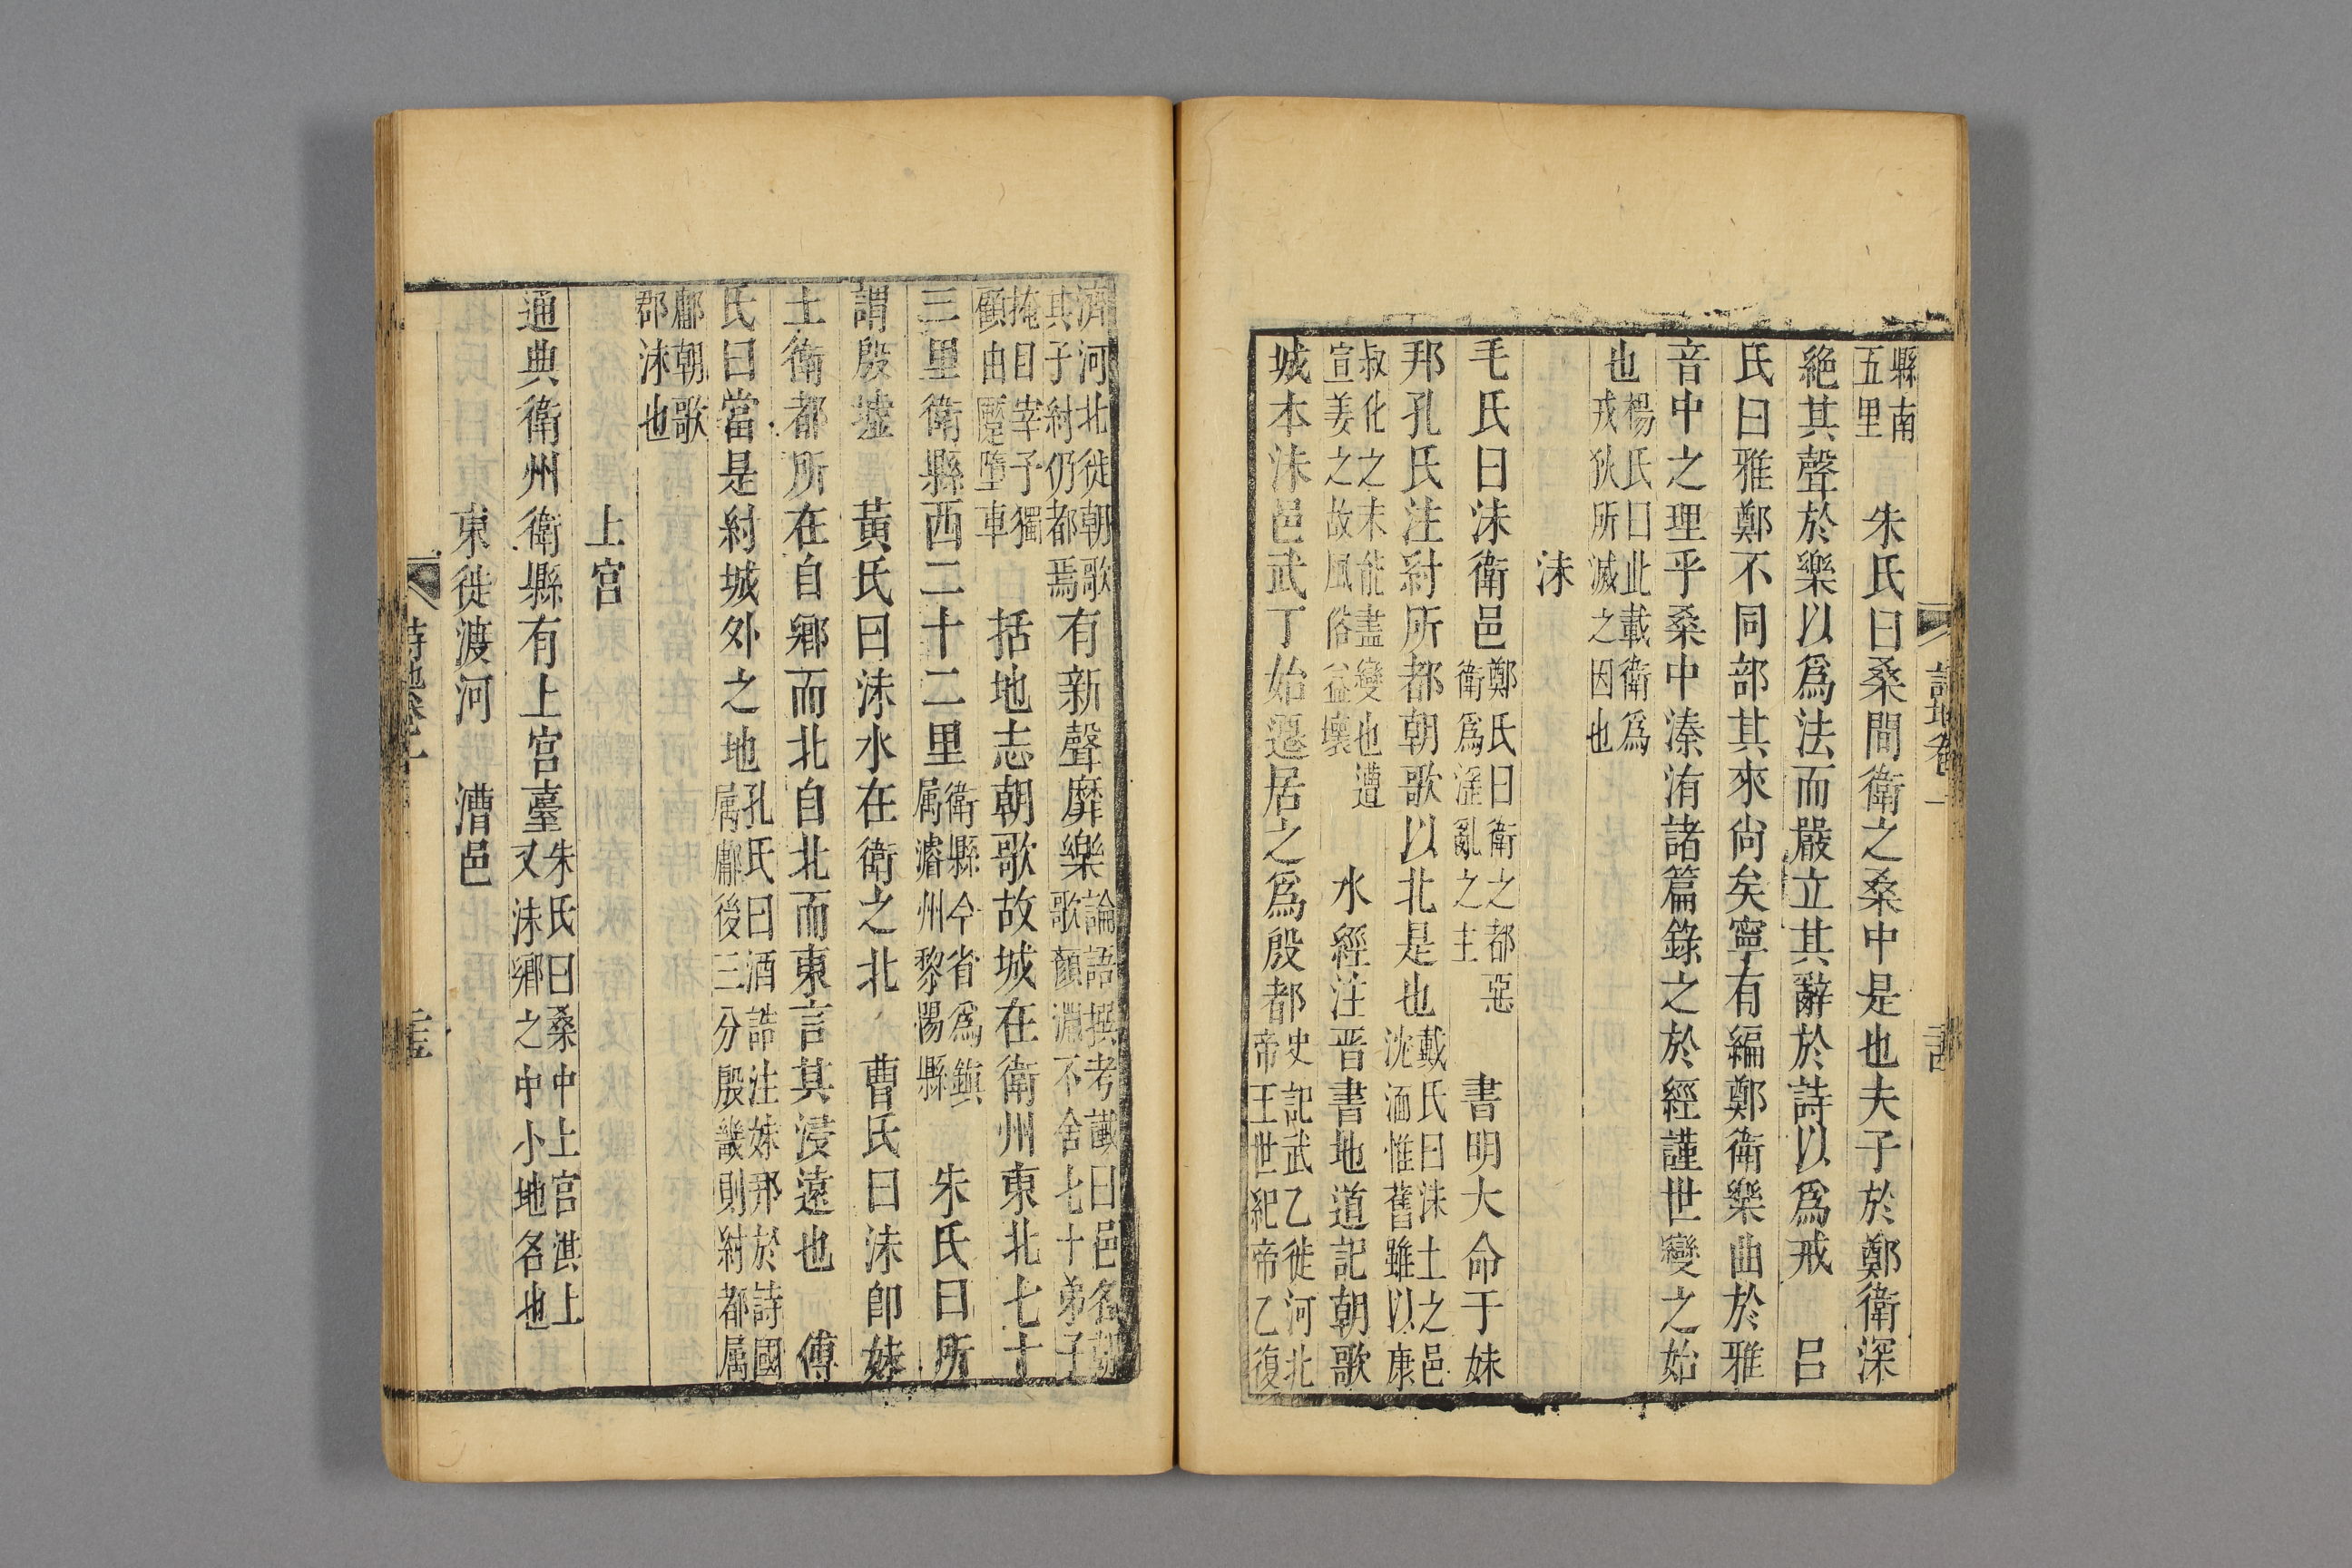 縣南
五里
朱氏曰桑間衛之桑中是也夫子於鄭衛深
絶其聲於樂以爲法而嚴立其辭於詩以爲戒 吕
氏曰雅鄭不同部其來尚矣寧有編鄭衛樂曲於雅
音中之理乎桑中溱洧諸篇錄之於經謹世變之始
也
楊氏曰此載衛爲
戎狄所滅之因也
沬
毛氏曰沬衛邑
鄭氏曰衛之都惡
衛爲淫亂之主
書明大命于妹
邦孔氏注紂所都朝歌以北是也
戴氏曰沬土之邑
沈湎惟舊雖以康
叔化之未能盡變也遭
宣姜之故風俗益壞
水經注晋書地道記朝歌
城本沬邑武丁始遷居之爲殷都
史記武乙徙河北
帝王世紀帝乙復
濟河北徙朝歌
其子紂仍都焉
有新聲靡樂
論語撰考讖曰邑名朝
歌顔淵不舍七十弟子
掩目宰予獨
顧由蹷墮車
括地志朝歌故城在衛州東北七十
三里衛縣西二十二里
衛縣今省爲鎮
属濬州黎陽縣
朱氏曰所
謂殷墟 黃氏曰沬水在衛之北 曹氏曰沬即妹
土衛都所在自鄉而北自北而東言其浸遠也 傅
氏曰當是紂城外之地
孔氏曰酒誥注妹邦於詩國
属鄘後三分殷畿則紂都属
鄘朝歌
郡沬也
上宫
通典衛州衛縣有上宫臺
朱氏曰桑中上宫淇上
又沬鄉之中小地名也
東徙渡河 漕邑